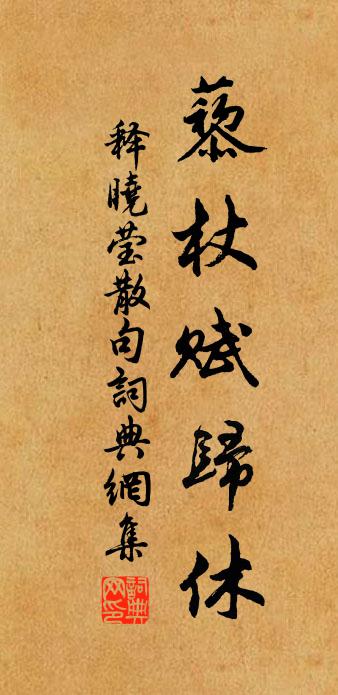 藜杖賦歸休
释曉瑩散句詞典網集
詞典網印